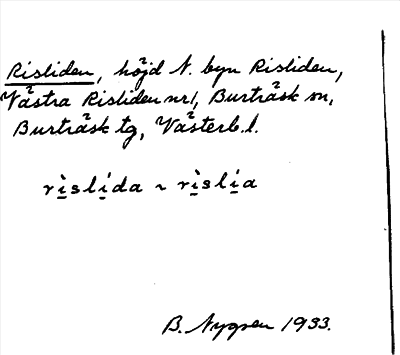 Risliden, höjd N. byn Risliden,
Västra Risliden nr 1, Burträsk sn,
Burträsk tg, Västerb. l.
rì̱slí̱da ~ rì̱slí̱a
B. Nygren 1933.